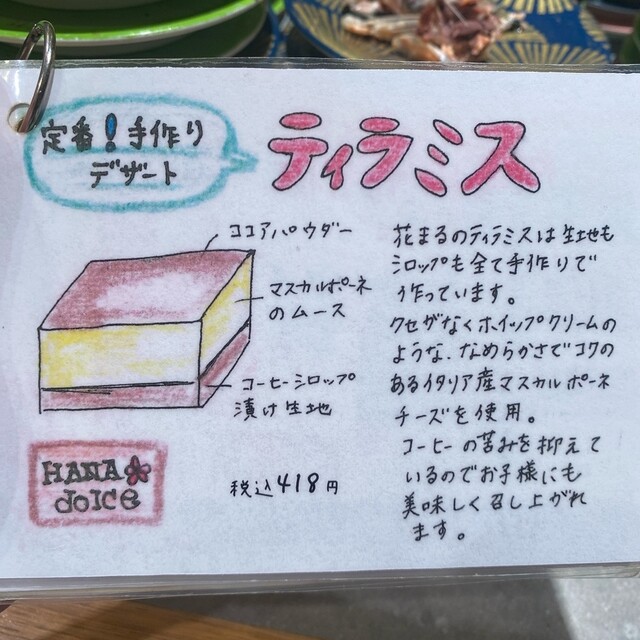 定番!手作り
デザート
ティラミス
ココアパウダー
マスカルポーネ
のムース
コーヒーシロップ
漬け生地
HANA
dolce
税込418円
花まるのティラミスは生地も
シロップも全て手作りで
作っています。
クセがなくホイップクリームの
ような、なめらかさでコクの
あるイタリア産マスカルポーネ
チーズを使用。
コーヒーの苦みを抑えて
いるのでお子様にも
美味しく召し上がれ
ます。